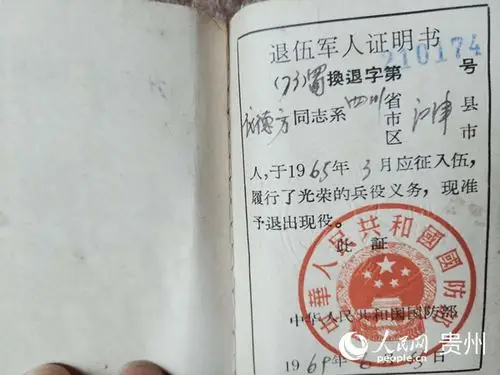 退伍军人证明书
210174
(73)蜀換退字第 号
方同志系四川省市区江津县市
人,于1965年3月应征入伍,
履行了光荣的兵役义务,现准
予退出现役。
此証
中華人民共和國國防部
中华人民共和国国防部
1969年 6月 日
人民网 贵州
people.cn